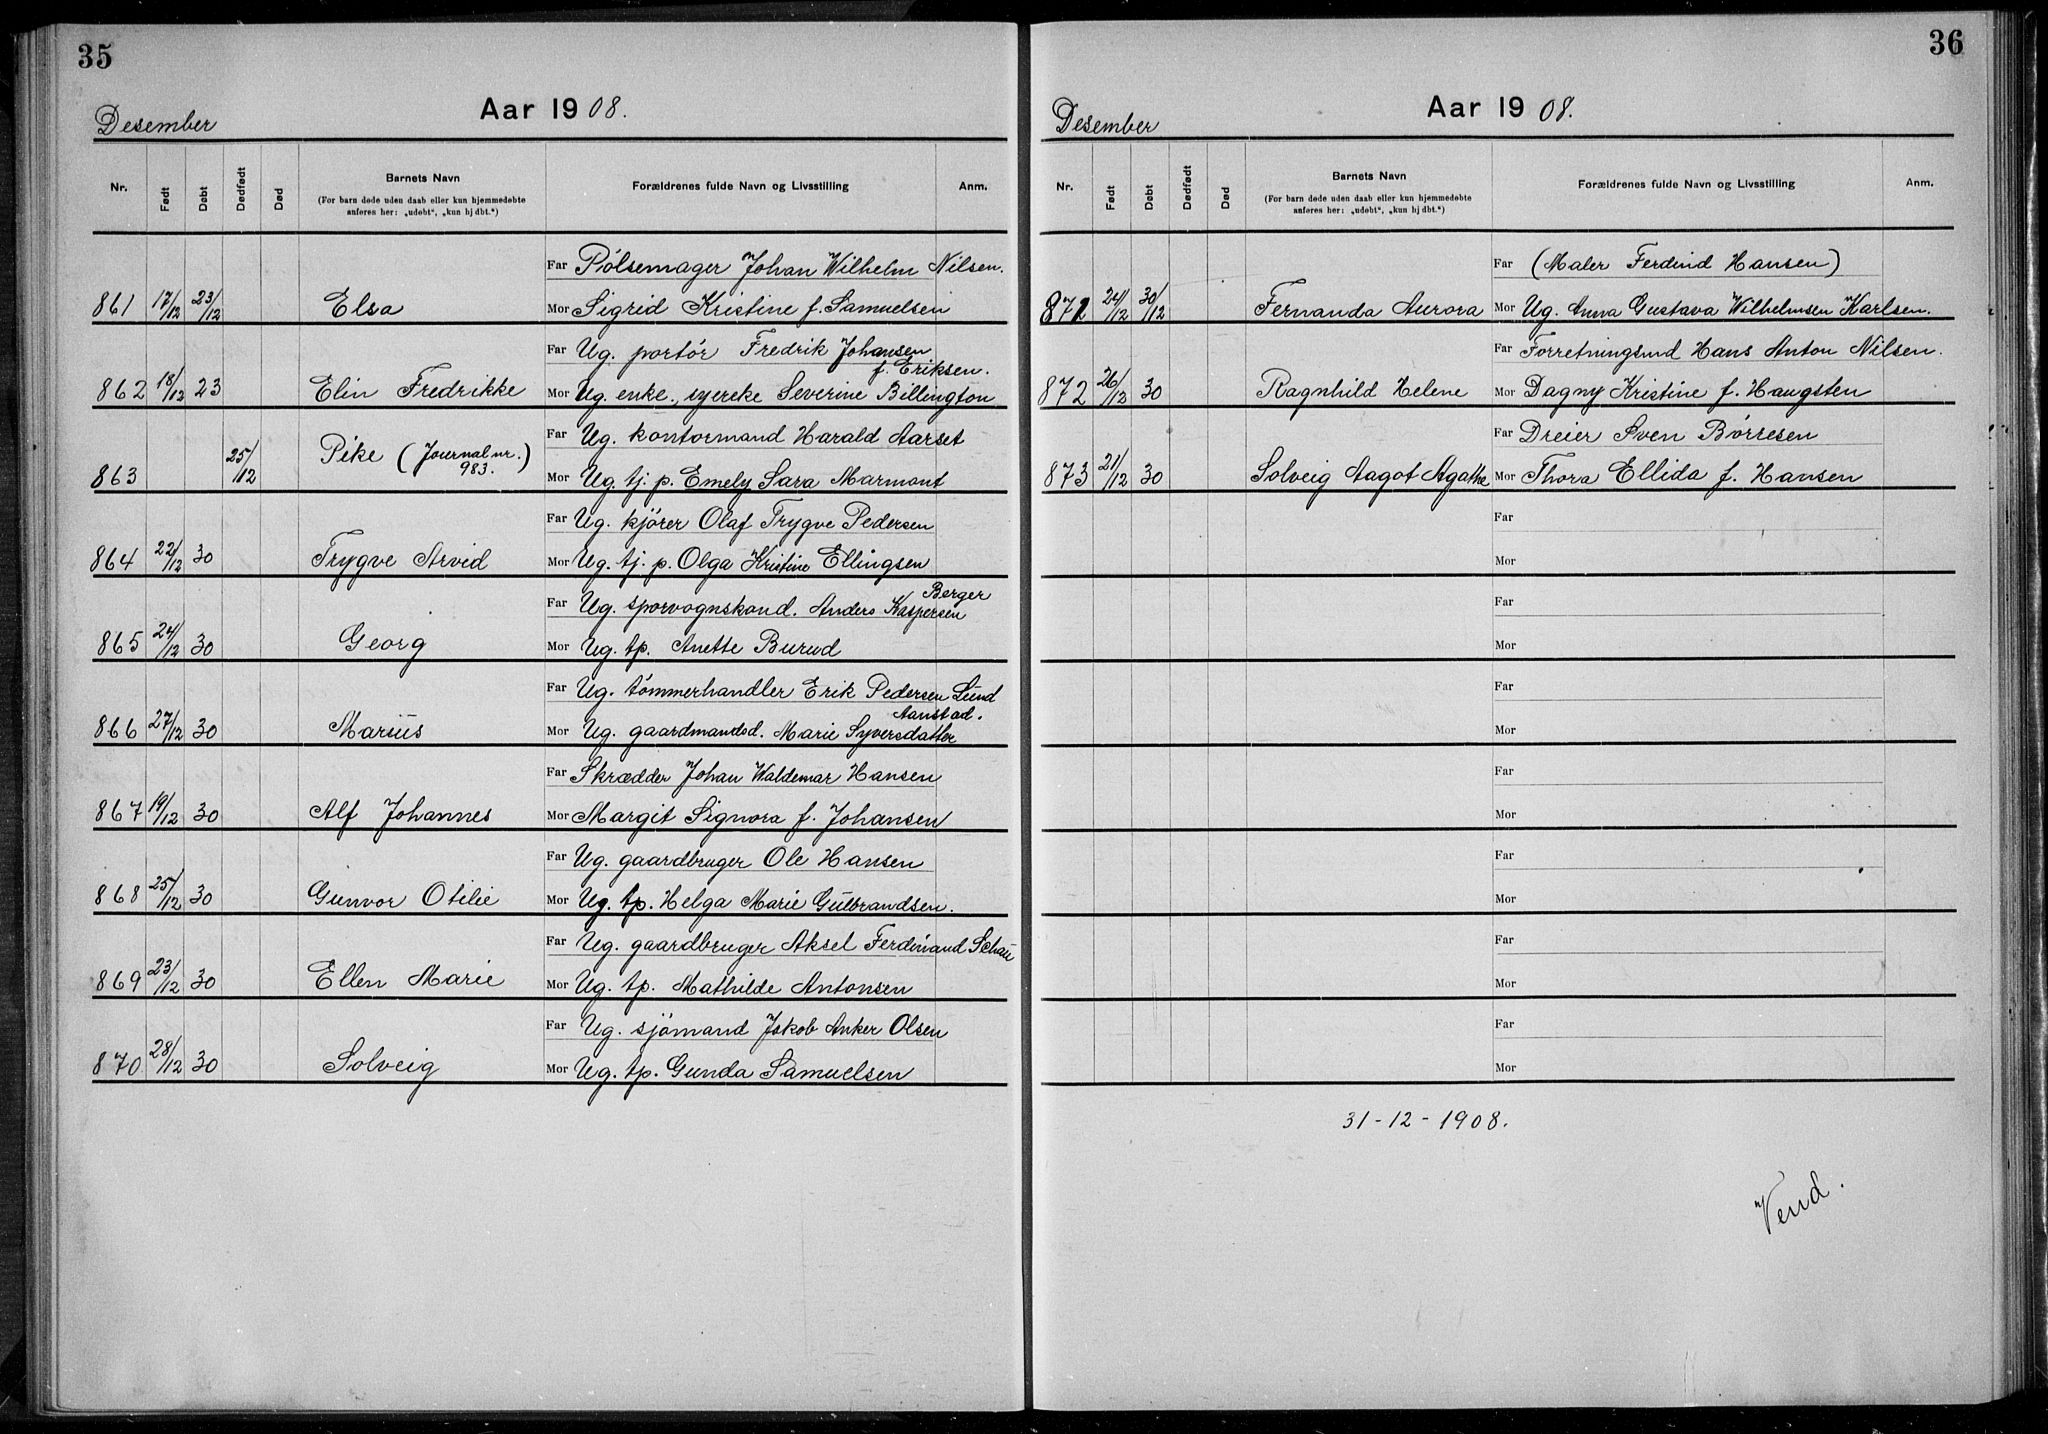 35
Aar 1908.
Desember
Nr. Født Døbt Dødfødt Død Barnets Navn Forældrenes fulde Navn og Livsstilling Anm.
(For barn døde uden daab eller kun hjemmedøbte
anføres her: „udøbt“, „kun hj dbt.“)
Far Pølsemager Johan Wilhelm Nilsen.
861 17/12 23/12 Elsa Mor Sigrid Kristine f. Samuelsen
Far Ug. portør Fredrik Johansen
f. Eriksen.
862 18/12 23 Elin Fredrikke Mor Ug. enke, syerske Severine Billington
Far Ug. kontormand Harald Aarset
863 25/12 Pike (Journal nr. 983.) Mor Ug. tj. p. Emely Sara Marmont
Far Ug. kjører Olaf Trygve Pedersen
864 22/12 30 Trygve Arvid Mor Ug. tj. p. Olga Kristine Ellingsen
Berger
Far Ug. sporvognskond. Anders Kaspersen
865 24/12 30 Georg Mor Ug. tp. Anette Burud
Far Ug. tømmerhandler Erik Pedersen Lund
Aanstad.
866 27/12 30 Marius Mor Ug. gaardmandsd. Marie Syversdatter
Far Skrædder Johan Waldemar Hansen
867 19/12 30 Alf Johannes Mor Margit Signora f. Johansen
Far Ug. gaardbruger Ole Hansen
868 25/12 30 Gunvor Otilie Mor Ug. tp. Helga Marie Gulbrandsen.
Far Ug. gaardbruger Aksel Ferdinand Schau
869 23/12 30 Ellen Marie Mor Ug. tp. Mathilde Antonsen
Far Ug. sjømand Jakob Anker Olsen
870 28/12 30 Solveig Mor Ug. tp. Gunda Samuelsen
36
Aar 1908.
Desember
Nr. Født Døbt Dødfødt Død Barnets Navn Forældrenes fulde Navn og Livsstilling Anm.
(For barn døde uden daab eller kun hjemmedøbte
anføres her: „udøbt“, „kun hj dbt.“)
Far (Maler Ferdind Hansen)
871 24/12 30/12 Fernanda Aurora Mor Ug. Anna Gustava Wilhelmsen Karlsen.
Far Forretningsmd Hans Anton Nilsen.
872 26/12 30 Ragnhild Helene Mor Dagny Kristine f. Haugsten
Far Dreier Sven Børresen
873 21/12 30 Solveig Aagot Agathe Mor Thora Ellida f. Hansen
Far
Mor
Far
Mor
Far
Mor
Far
Mor
Far
Mor
Far
Mor
Far
Mor
31-12-1908.
Vend.